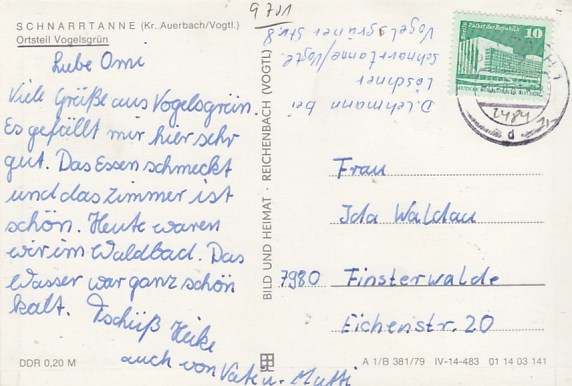 SCHNARRTANNE (Kr. Auerbach/Vogtl.)
Ortsteil Vogelsgrün
Liebe Omi
Viele Grüße aus Vogelsgrün.
Es gefällt mir hier sehr
gut. Das Essen schmeckt
und das Zimmer ist
schön. Heute waren
wir im Waldbad. Das
Wasser war ganz schön
kalt. Tschüß Heike
auch von Vati u. Mutti
DDR 0,20 M
BILD UND HEIMAT · REICHENBACH (VOGTL)
D. Lehmann bei
Löschner
Schnarrtanne/Vogtl.
Vogelsgrüner Str. 8
9701
10
Palast der Republik
Frau
Ida Waldau
7980 Finsterwalde
Eichenstr. 20
A 1/B 381/79 IV-14-483 01 14 03 141